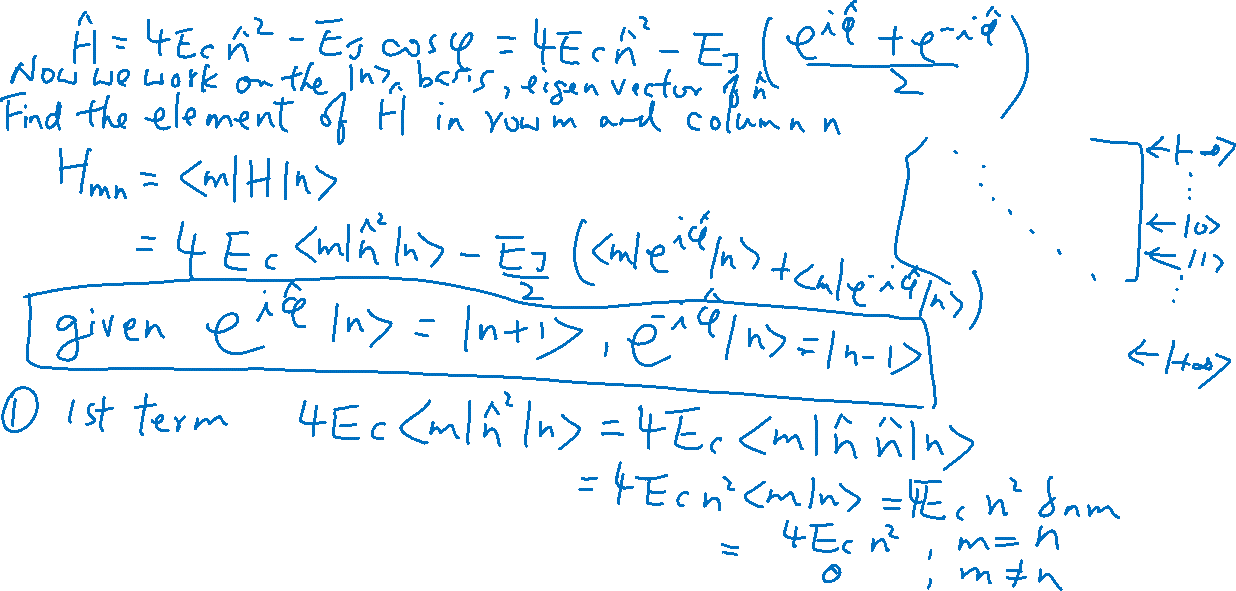 Ĥ = 4Ec n̂² - EJ cos φ = 4Ec n̂² - EJ (e^{iφ̂} + e^{-iφ̂} / 2)
Now we work on the |n> basis, eigen vector of n̂
Find the element of Ĥ in row m and column n
H_mn = <m|H|n>
= 4 Ec <m|n̂²|n> - EJ/2 (<m|e^{iφ̂}|n> + <m|e^{-iφ̂}|n>)
given e^{iφ̂} |n> = |n+1>, e^{-iφ̂}|n> = |n-1>
① 1st term 4Ec <m|n̂²|n> = 4Ec <m|n̂ n̂|n>
= 4Ec n² <m|n> = 4Ec n² δnm
= 4Ec n², m = n
0, m ≠ n
[ ⋱ ] ← |-∞>
⋮
← |0>
← |1>
⋮
← |+∞>